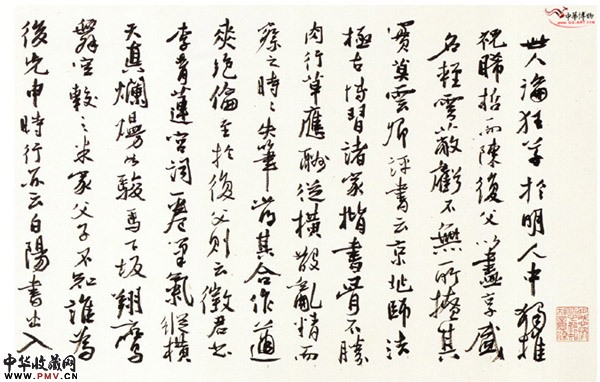 世人論狂草於明人中獨推
祝睎哲而陳復父以畫享盛
名輕雲蔽虧不無所掩其
實莫雲卿評書云京兆師法
極古博習諸家楷書骨不勝
肉行草應酬從橫散亂精而
察之時〻失筆當其合作遒
爽絕倫至於復父則云徵君書
李青蓮宮詞一卷筆氣縱橫
天真爛熳如駿馬下坂翔鸞
舞空較之米家父子不知誰為
後先申時行亦云白陽書出入
中华博物
中华收藏网
www.PMV.cn